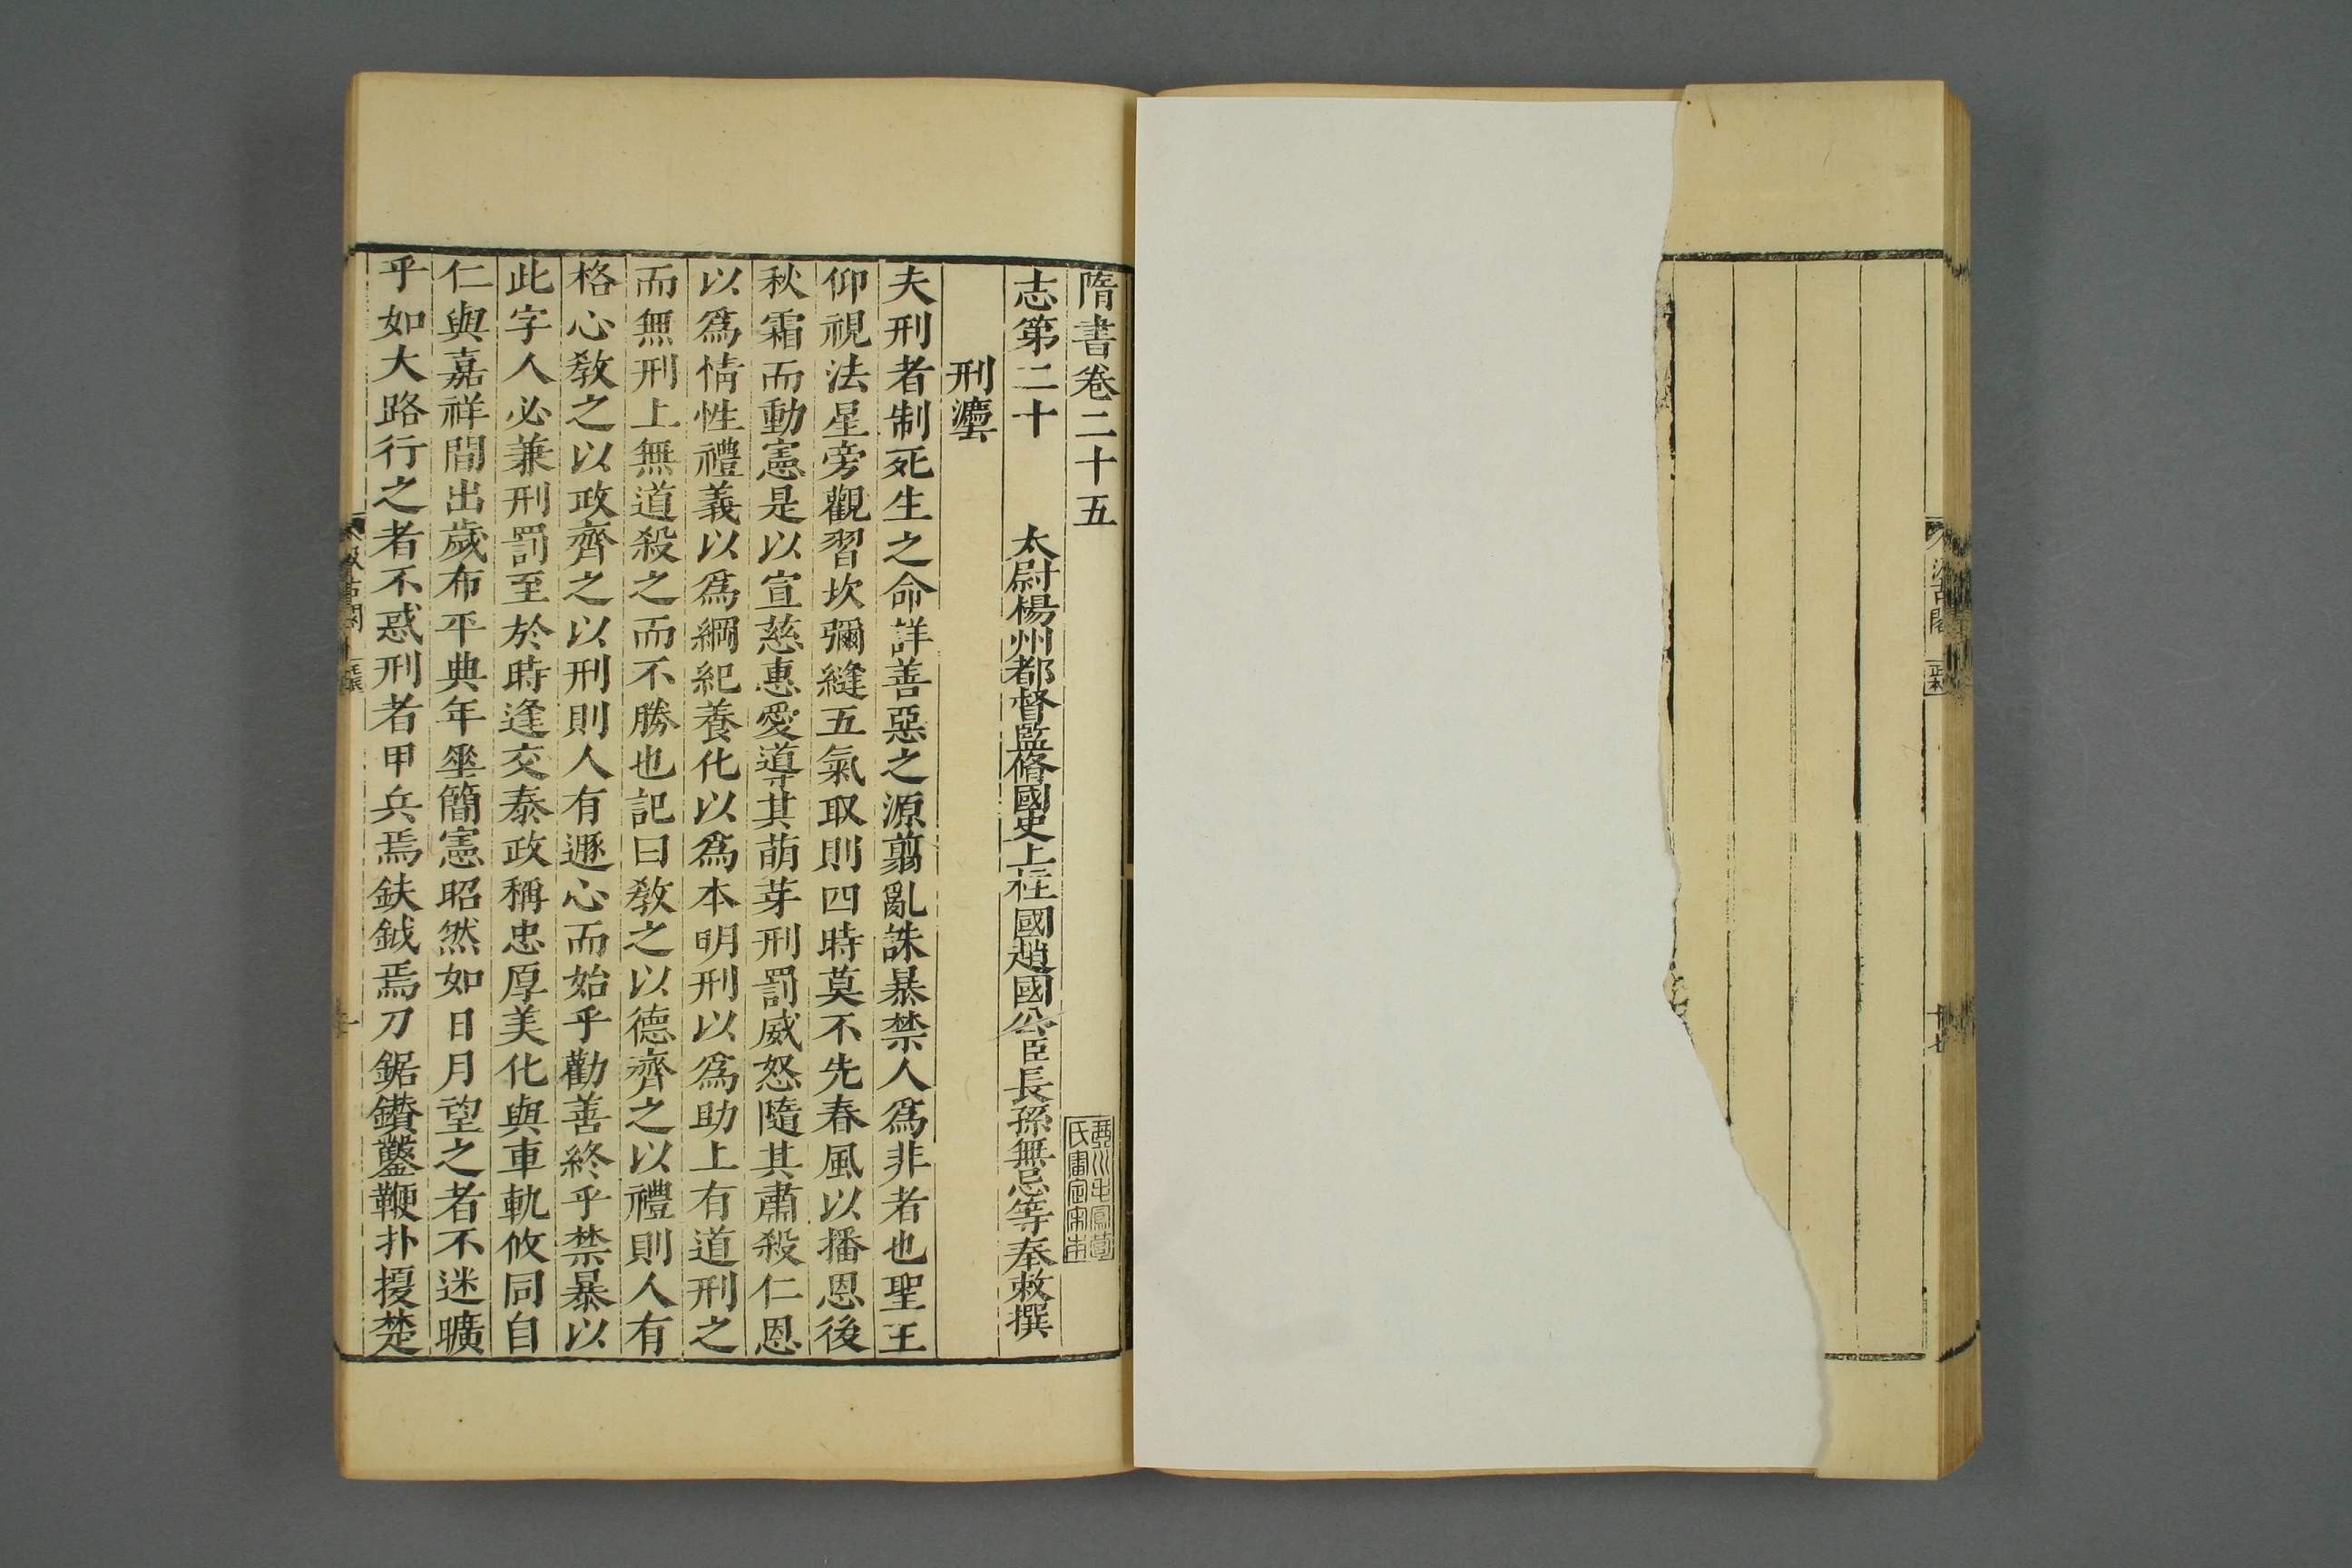 隋書卷二十五
志第二十 太尉楊州都督監脩國史上柱國趙國公臣長孫無忌等奉敕撰
刑灋
夫刑者制死生之命詳善惡之源翦亂誅暴禁人爲非者也聖王
仰視法星旁觀習坎彌縫五氣取則四時莫不先春風以播恩後
秋霜而動憲是以宣慈惠愛導其萌芽刑罰威怒隨其肅殺仁恩
以爲情性禮義以爲綱紀養化以爲本明刑以爲助上有道刑之
而無刑上無道殺之而不勝也記曰敎之以德齊之以禮則人有
格心敎之以政齊之以刑則人有遯心而始乎勸善終乎禁暴以
此字人必兼刑罰至於時逢交泰政稱忠厚美化與車軌攸同自
仁與嘉祥間出歲布平典年垂簡憲昭然如日月望之者不迷曠
乎如大路行之者不惑刑者甲兵焉鈇鉞焉刀鋸鑽鑿鞭扑榎楚
汲古閣